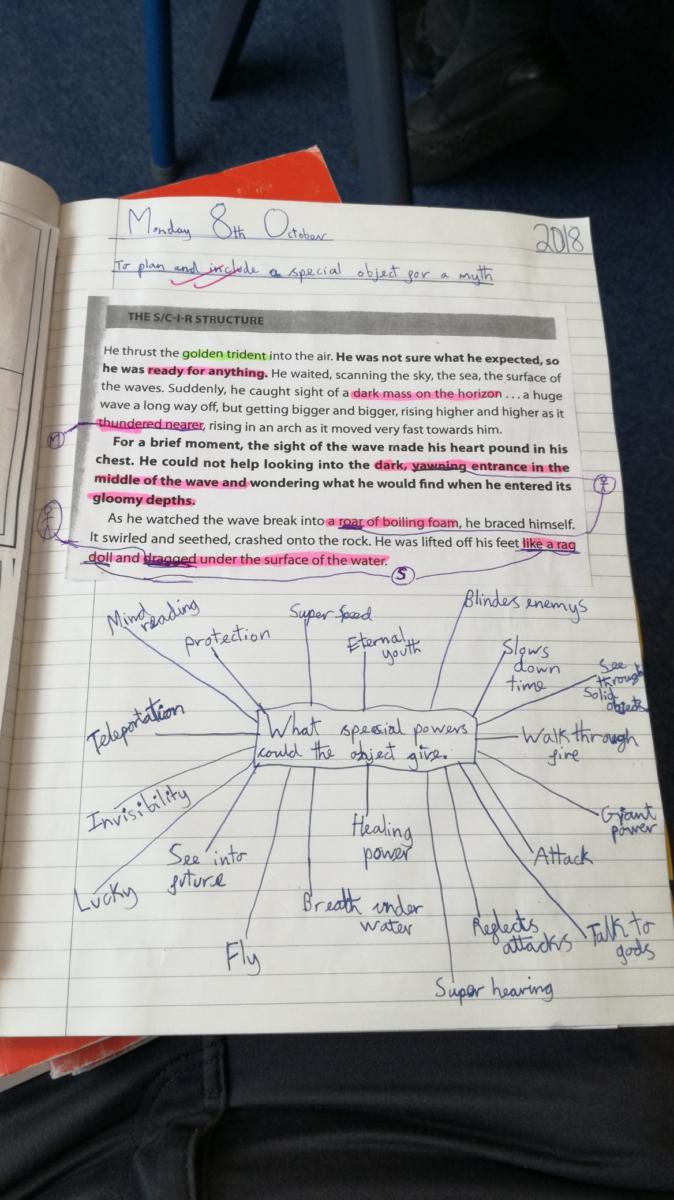 Monday 8th October
2018
To plan and include a special object for a myth
THE S/C-I-R STRUCTURE
He thrust the golden trident into the air. He was not sure what he expected, so
he was ready for anything. He waited, scanning the sky, the sea, the surface of
the waves. Suddenly, he caught sight of a dark mass on the horizon ... a huge
wave a long way off, but getting bigger and bigger, rising higher and higher as it
thundered nearer, rising in an arch as it moved very fast towards him.
M
For a brief moment, the sight of the wave made his heart pound in his
chest. He could not help looking into the dark, yawning entrance in the
middle of the wave and wondering what he would find when he entered its
gloomy depths.
As he watched the wave break into a roar of boiling foam, he braced himself.
It swirled and seethed, crashed onto the rock. He was lifted off his feet like a rag
doll and dragged under the surface of the water.
S
Mind reading
protection
Super speed
Eternal youth
Blindes enemys
Slows down time
See through Solid objects
Teleportation
What special powers
could the object give.
Walk through fire
Invisibility
See into future
Healing power
Attack
power
Lucky
Fly
Breath under water
Reflects attacks
Talk to gods
Super hearing